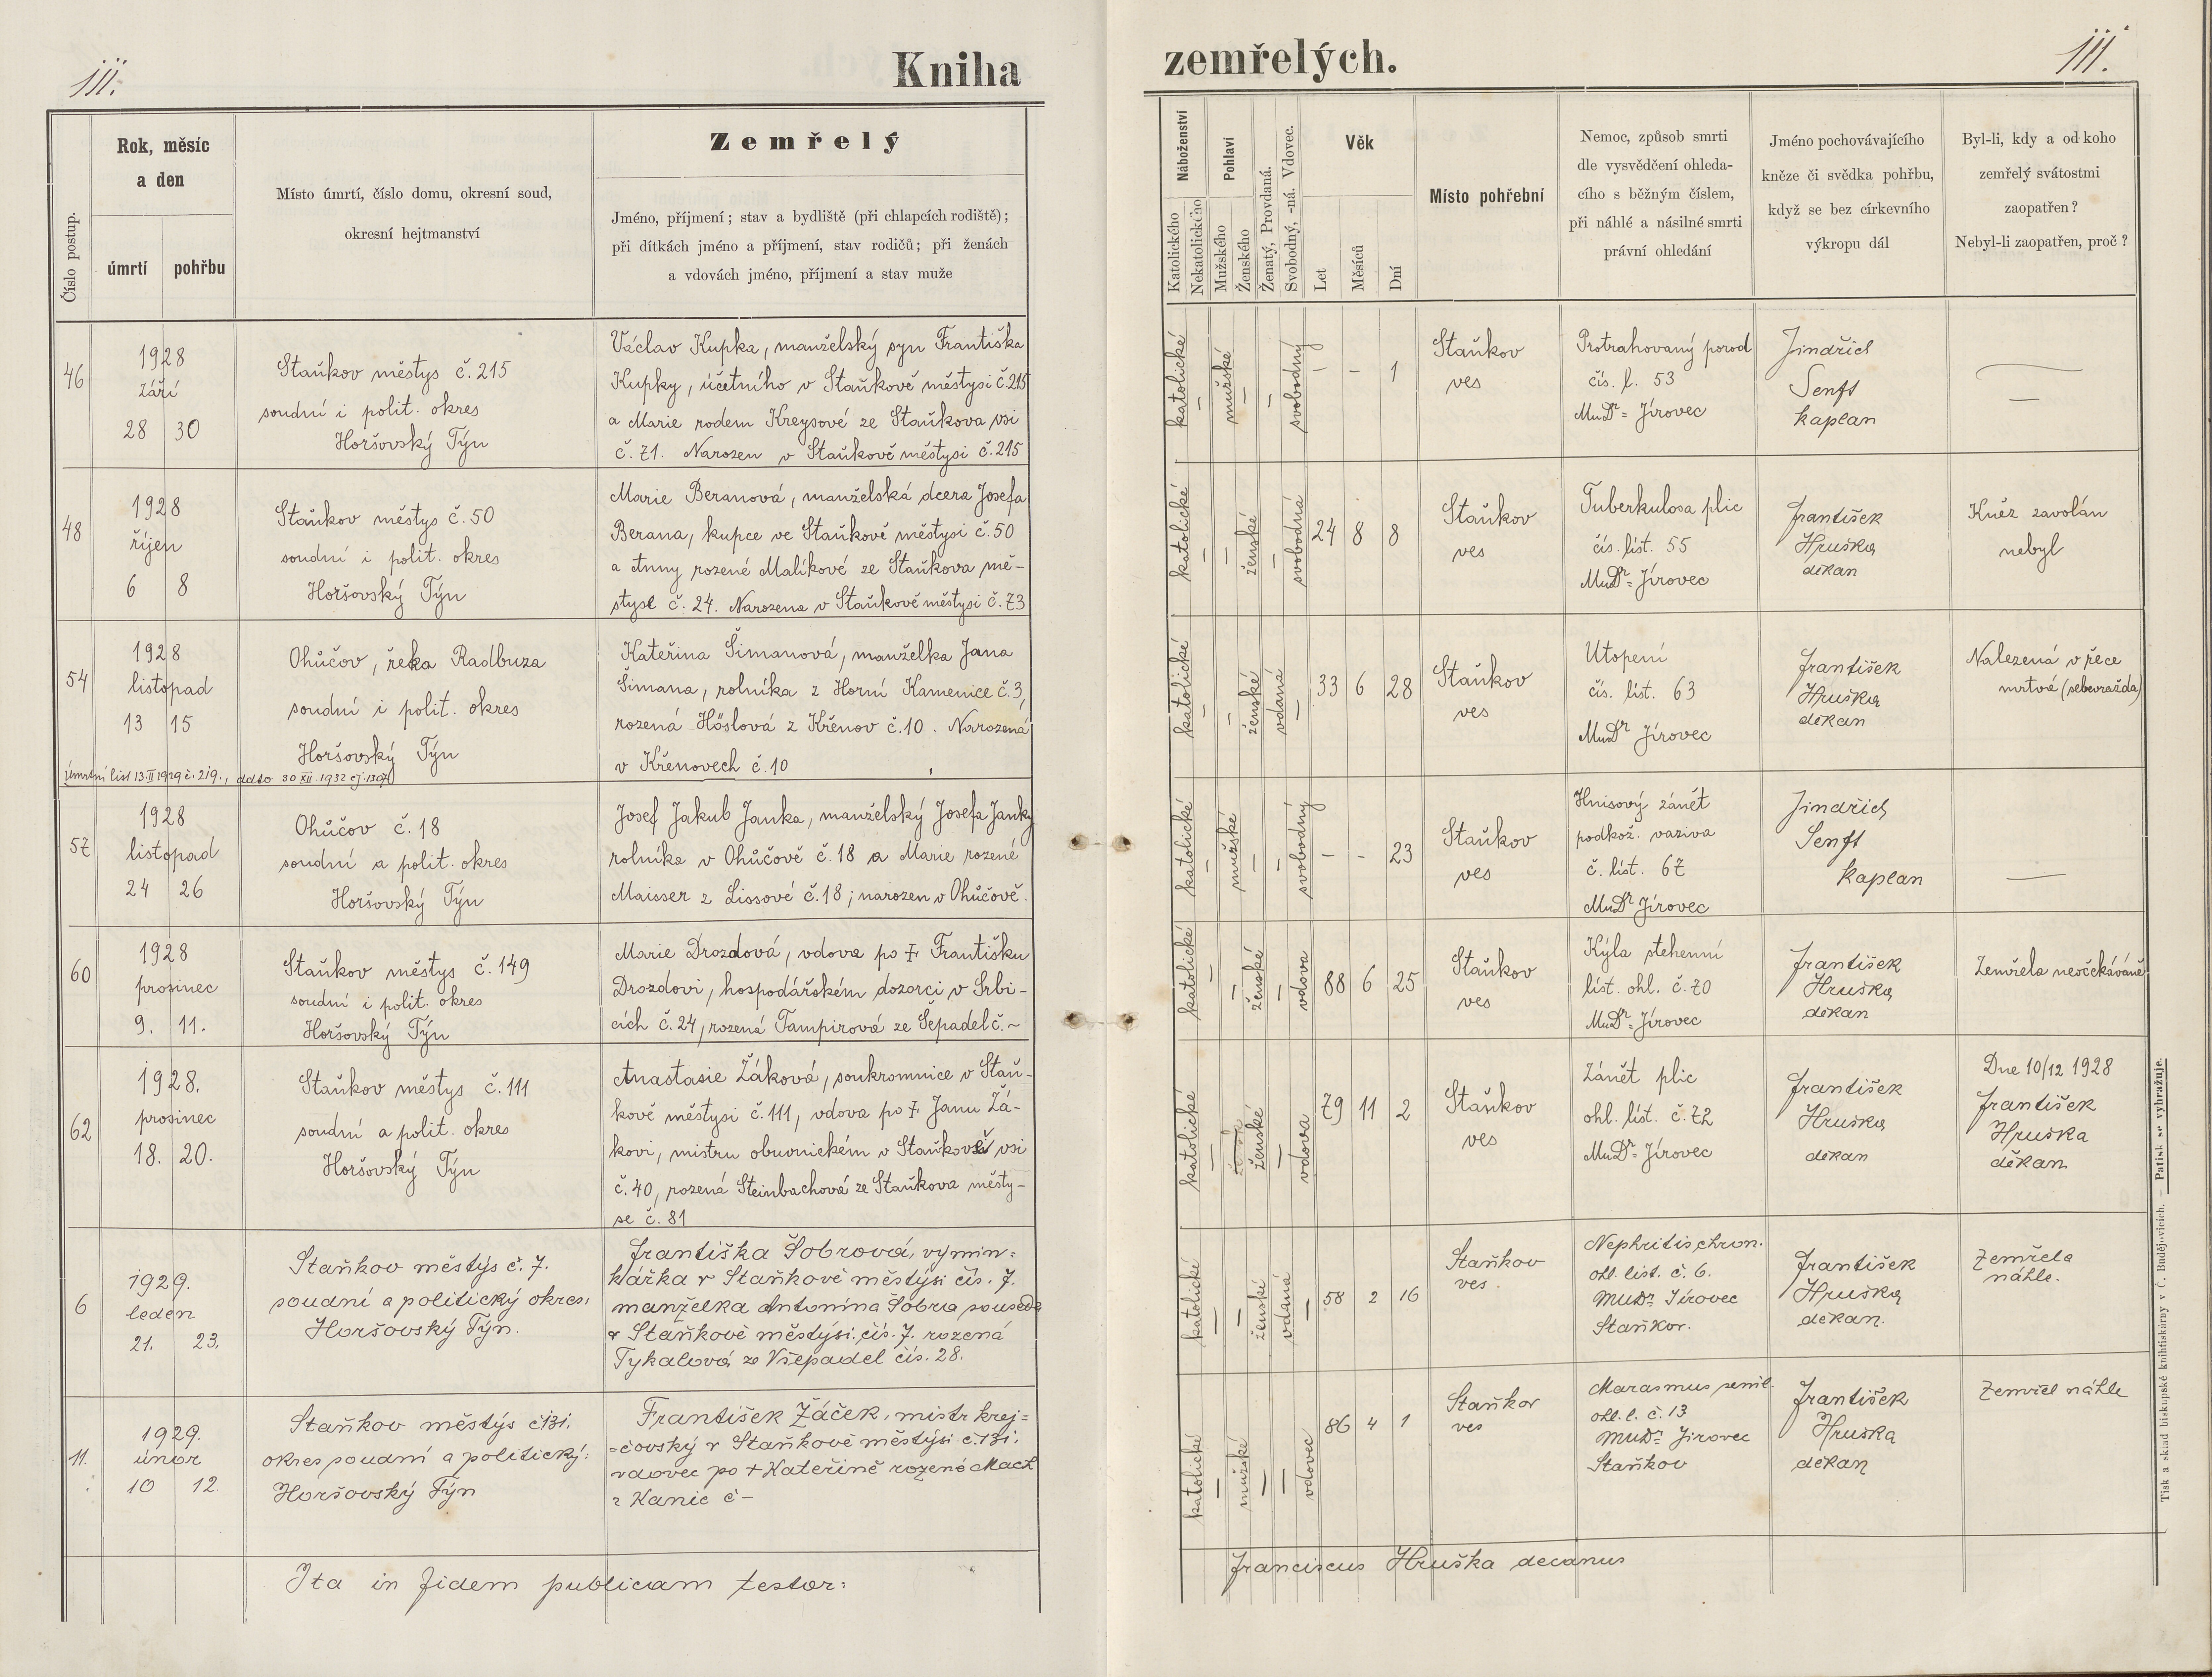 111.
Kniha
zemřelých.
111.
Číslo postup.
Rok, měsíc
a den
úmrtí
pohřbu
Místo úmrtí, číslo domu, okresní soud,
okresní hejtmanství
Zemřelý
Jméno, příjmení; stav a bydliště (při chlapcích rodiště);
při dítkách jméno a příjmení, stav rodičů; při ženách
a vdovách jméno, příjmení a stav muže
Náboženství
Katolického
Nekatolického
Pohlaví
Mužského
Ženského
Ženatý, Provdaná.
Svobodný, -ná. Vdovec.
Věk
Let
Měsíců
Dní
Místo pohřební
Nemoc, způsob smrti
dle vysvědčení ohleda-
cího s běžným číslem,
při náhlé a násilné smrti
právní ohledání
Jméno pochovávajícího
kněze či svědka pohřbu,
když se bez církevního
výkropu dál
Byl-li, kdy a od koho
zemřelý svátostmi
zaopatřen?
Nebyl-li zaopatřen, proč?
46
1928
září
28 30
Staňkov městys č. 215
soudní i polit. okres
Horšovský Týn
Václav Kupka, manželský syn Františka
Kupky, účetního v Staňkově městysi č. 215
a Marie rodem Kreysové ze Staňkova vsi
č. 71. Narozen v Staňkově městysi č. 215
katolické
—
mužské
—
—
svobodný
— — 1
Staňkov
ves
Protrahovaný porod
čís. l. 53
MuDr= Jírovec
Jindřich
Senft
kaplan
—
48
1928
říjen
6 8
Staňkov městys č. 50
soudní i polit. okres
Horšovský Týn
Marie Beranová, manželská dcera Josefa
Berana, kupce ve Staňkově městysi č. 50
a Anny rozené Malíkové ze Staňkova mě-
styse č. 24. Narozena v Staňkově městysi č. 73
katolické
—
—
ženské
—
svobodná
24 8 8
Staňkov
ves
Tuberkulosa plic
čís. list. 55
MuDr= Jírovec
František
Hruška
děkan
Kněz zavolán
nebyl
54
1928
listopad
13 15
Ohůčov, řeka Radbuza
soudní i polit. okres
Horšovský Týn
Úmrtní list 13.II 1929 č. 219., ddto 30 XII. 1932 čj. 1307
Kateřina Šimanová, manželka Jana
Šimana, rolníka z Horní Kamenice č. 3,
rozená Höslová z Křenov č. 10. Narozená
v Křenovech č. 10
katolické
—
—
ženské
vdaná
—
33 6 28
Staňkov
ves
Utopení
čís. list. 63
MuDr Jírovec
František
Hruška
děkan
Nalezená v řece
mrtvá (sebevražda)
57
1928
listopad
24 26
Ohůčov č. 18
soudní a polit. okres
Horšovský Týn
Josef Jakub Janka, manželský Josefa Janky
rolníka v Ohůčově č. 18 a Marie rozené
Maisser z Lissové č. 18; narozen v Ohůčově.
katolické
—
mužské
—
—
svobodný
— — 23
Staňkov
ves
Hnisový zánět
podkož. vaziva
č. list. 67
MuDr Jírovec
Jindřich
Senft
kaplan
—
60
1928
prosinec
9. 11.
Staňkov městys č. 149
soudní i polit. okres
Horšovský Týn
Marie Drozdová, vdova po † Františku
Drozdovi, hospodářském dozorci v Srbi-
cích č. 24, rozená Tampirová ze Šepadel č. ~
katolické
—
—
ženské
—
vdova
88 6 25
Staňkov
ves
Kýla stehenní
list. ohl. č. 70
MuDr= Jírovec
František
Hruška
děkan
Zemřela neočekáváně
62
1928.
prosinec
18. 20.
Staňkov městys č. 111
soudní a polit. okres
Horšovský Týn
Anastasie Žáková, soukromnice v Staň-
kově městysi č. 111, vdova po † Janu Žá-
kovi, mistru obuvnickém v Staňkově vsi
č. 40, rozená Steinbachová ze Staňkova městy-
se č. 81
katolické
—
ženské
—
vdova
79 11 2
Staňkov
ves
Zánět plic
ohl. list. č. 72
MuDr= Jírovec
František
Hruška
děkan
Dne 10/12 1928
František
Hruška
děkan
6
1929.
leden
21. 23.
Staňkov městýs č. 7.
soudní a politický okres:
Horšovský Týn.
Františka Šobrová, vymin=
kářka v Staňkově městýsi čís. 7.
manželka Antonína Šobra souseda
v Staňkově městýsi čís. 7. rozená
Tykalová ze Všepadel čís. 28.
katolické
—
—
ženské
vdaná
—
58 2 16
Staňkov
ves.
Nephritis chron.
ohl. list. č. 6.
MUDr Jírovec
Staňkov.
František
Hruška
děkan.
Zemřela
náhle.
11.
1929.
únor
10 12.
Staňkov městýs č 131.
okres soudní a politický:
Horšovský Týn
František Žáček, mistr krej=
=čovský v Staňkově městýsi č. 131.
vdovec po † Kateřině rozené Mach
z Kanic č —
katolické
—
mužské
—
—
vdovec
86 4 1
Staňkov
ves
Marasmus senil.
ohl. l. č. 13
MUDr Jírovec
Staňkov
František
Hruška
děkan
Zemřel náhle
Ita in fidem publicam testor:
Franciscus Hruška decanus
Tisk a sklad biskupské knihtiskárny v Č. Budějovicích. — Patisk se vyhražuje.